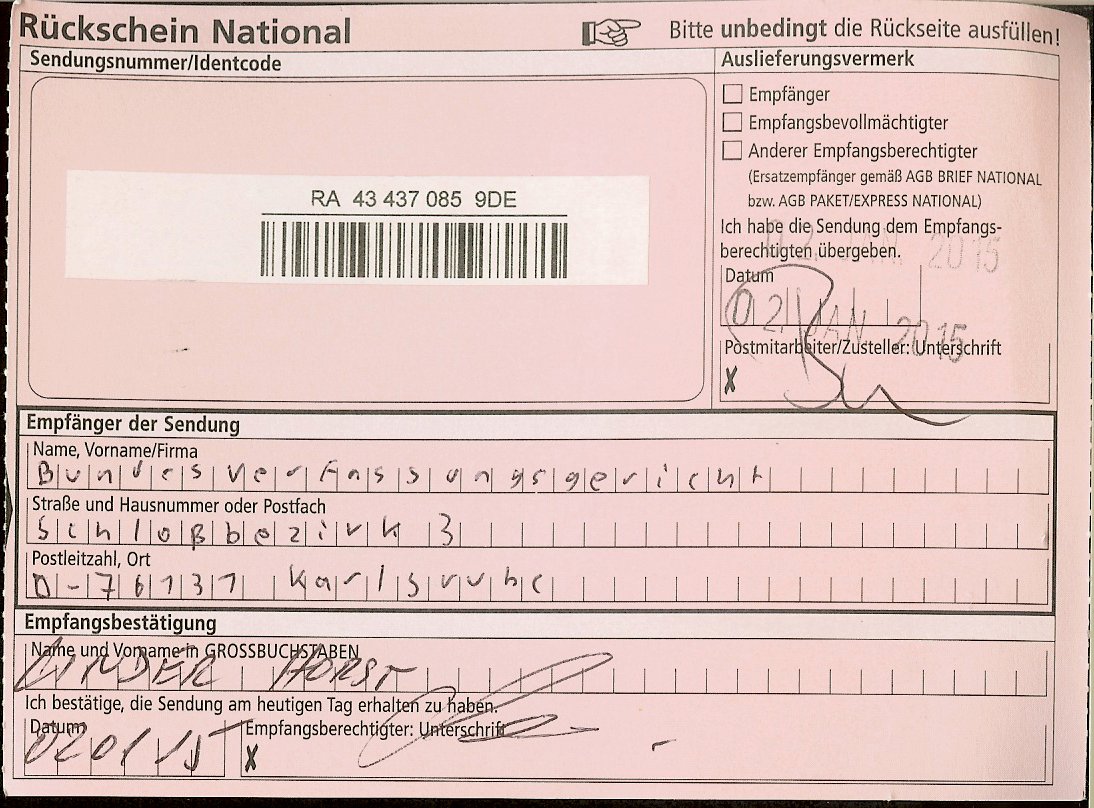 Rückschein National
Bitte unbedingt die Rückseite ausfüllen!
Sendungsnummer/Identcode
RA 43 437 085 9DE
Auslieferungsvermerk
Empfänger
Empfangsbevollmächtigter
Anderer Empfangsberechtigter
(Ersatzempfänger gemäß AGB BRIEF NATIONAL
bzw. AGB PAKET/EXPRESS NATIONAL)
Ich habe die Sendung dem Empfangs-
berechtigten übergeben.
02. JAN. 2015
Datum
02. JAN. 2015
Postmitarbeiter/Zusteller: Unterschrift
X
Empfänger der Sendung
Name, Vorname/Firma
Bundesverfassungsgericht
Straße und Hausnummer oder Postfach
Schloßbezirk 3
Postleitzahl, Ort
D-76131 Karlsruhe
Empfangsbestätigung
Name und Vorname in GROSSBUCHSTABEN
LINDER HORST
Ich bestätige, die Sendung am heutigen Tag erhalten zu haben.
Datum
020115
Empfangsberechtigter: Unterschrift
X